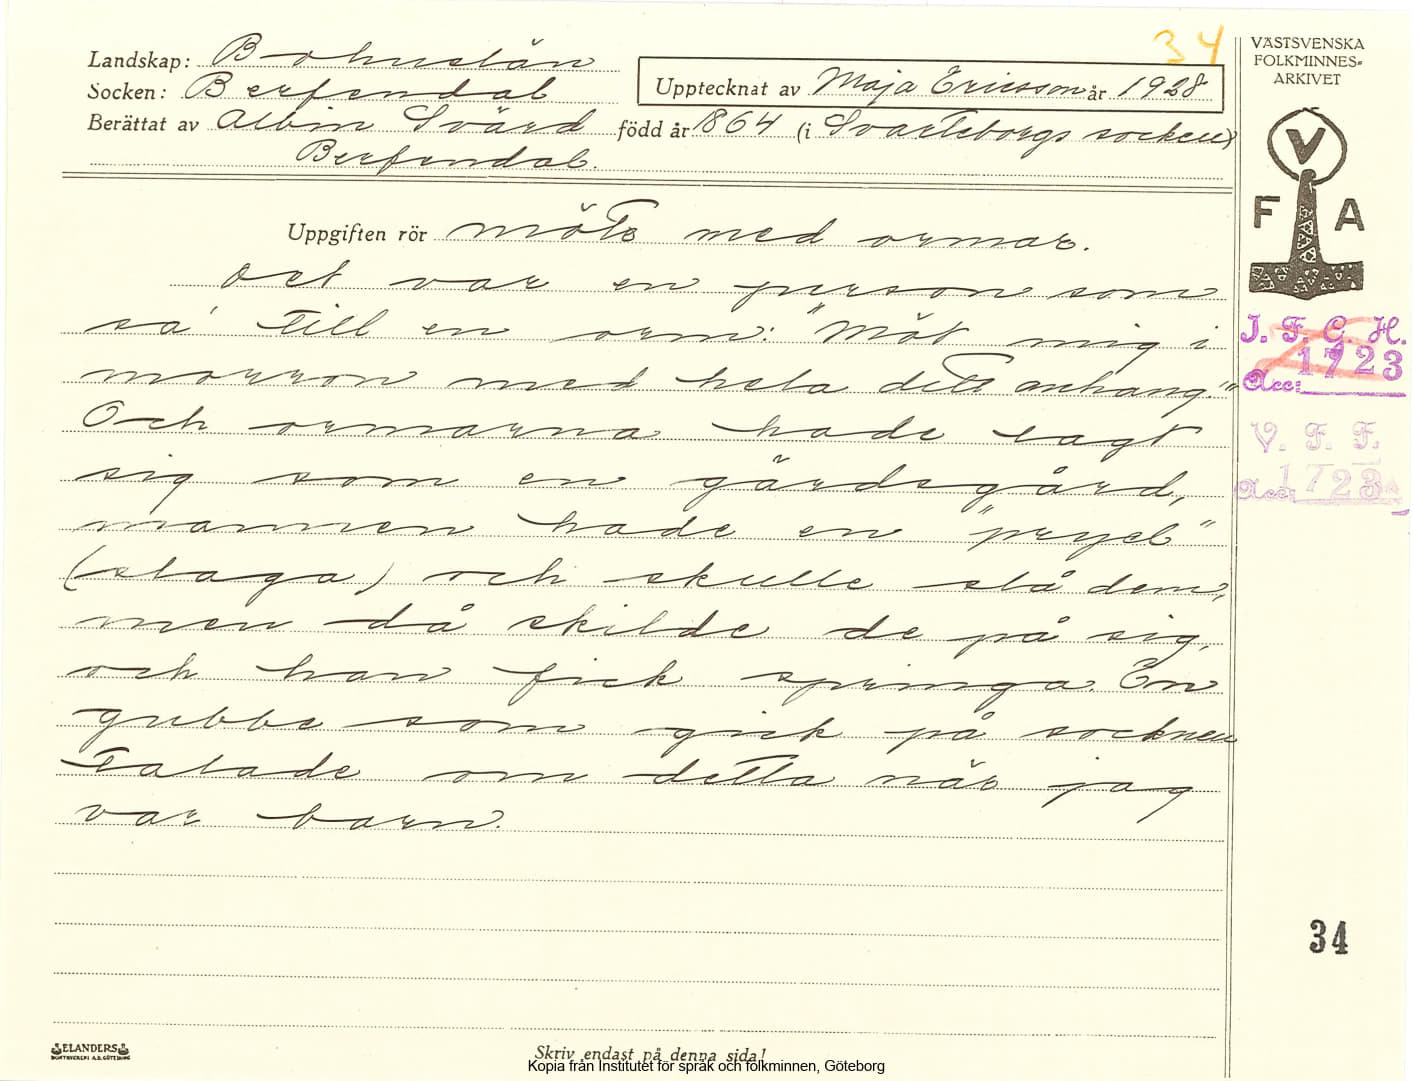 34
VÄSTSVENSKA
FOLKMINNES-
ARKIVET
Landskap: Bohuslän
Socken: Berfendal
Upptecknat av Maja Ericsson år 1928
Berättat av Albin Svärd född år 1864 (i Svarteborgs socken)
Berfendal.
V
F A
Uppgiften rör möte med ormar.
Det var en person som
sa' till en orm: "Möt mig i
morron med hela ditt anhang!"
Och ormarna hade lagt
sig som en gärdsgård,
mannen hade en "pryel"
(slaga) och skulle slå dem,
men då skilde de på sig,
och han fick springa. En
gubbe som gick på socknen
talade om detta när jag
var barn.
J. F. G. H.
Acc: 1723
V. F. F.
Acc: 1723
34
ELANDERS
Skriv endast på denna sida!
Kopia från Institutet för språk och folkminnen, Göteborg